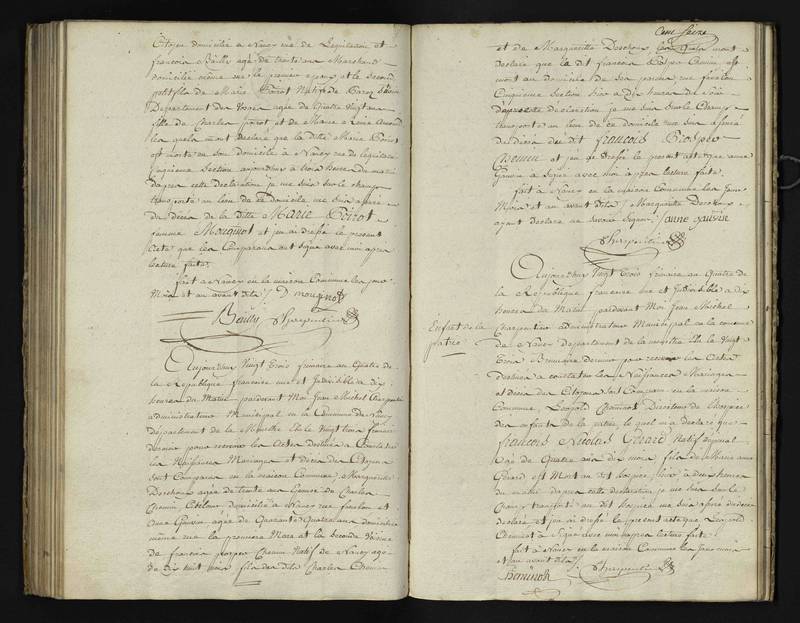 Citoyen domicilié à Nancy rue de Legislation et
françois Bailly agé de trente ans Marchand
domicilié même rue le premier epoux et le second
petit fils de Marie Poirot Native de
Departement des agée de Quatre Vingt ans
fille de Charles Poirot et de Marie
les quels mont declaré que la ditte Marie Poirot
est morte en son domicile à Nancy rue de legislation
Cinquieme Section aujourdhuy à trois heures du matin
dapres cette declaration je me suis sur le champ
transporté au lieu de ce domicile me suis assuré
du décès de la ditte Marie Poirot
femme Mougnot et jen ai dressé le present
Acte que les Comparans ont signé avec moi apres
lecture faite
fait à Nancy en la maison Commune les jour
Mois et an avant dits / D mougnot
Bailly Charpentier
Aujourdhuy Vingt Trois frimaire an Quatre de
la Republique francaise une et Indivisible à dix
heures du Matin pardevant Moi Jean Michel Charpentier
administrateur Municipal en la Commune de Nancy
département de la Meurthe Elu le Vingt trois
dernier pour recevoir les Actes destinés à Constater
les Naissances Mariages et décès des Citoyens
sont Comparus en la maison Commune Marguerite
Derchoux agée de trente ans Epouse de Charles
Chemin domicilié à Nancy rue et
Anne Gauvin agée de Quarante Quatre ans domiciliée
même rue la premiere Mere et la Seconde Voisine
de françois prosper Chemin Natif de Nancy agé
de dix huit mois fils des dits Charles Chemin
et de Marguerite Derchoux les quels mont
declaré que le dit francois Prosper Chemin est
mort au domicile de ses parens rue
Cinquieme Section hier à dix heures du soir
dapres cette declaration je me suis Sur le Champ
transporté au lieu de ce domicile me suis assuré
du décès du dit françois Prosper
Chemin et jen ai dressé le present acte que anne
Gauvin a Signé avec moi apres lecture faite
fait à Nancy en la maison Commune les Jour
Mois et an avant dits / Marguerite Derchoux
ayant declaré ne savoir signer / anne gauvin
Charpentier
Enfant de la
patrie
Aujourdhuy Vingt Trois frimaire an Quatre de
la Republique francaise une et Indivisible à dix
heures du Matin pardevant Moi Jean Michel
Charpentier administrateur Municipal en la commune
de Nancy département de la meurthe Elu le Vingt
Trois Brumaire dernier pour recevoir les Actes
destinés à constater les Naissances Mariages
et décès des Citoyens sont Comparu en la maison
Commune Leopold Cheminot Directeur de l'hospice
des enfans de la patrie lequel m'a declaré que
françois Nicolas Gérard Natif
agé de Quatre ans dix mois fils de
Gérard est Mort au dit hospice hier à deux heures
du matin dapres cette declaration je me suis Sur le
Champ transporté au dit hospice me suis assuré du décès
declaré et jen ai dressé le present acte que Leopold
Cheminot a Signé avec moi apres lecture faite
fait à Nancy en la maison Commune les jour mois
et an avant dits /
Cheminot Charpentier